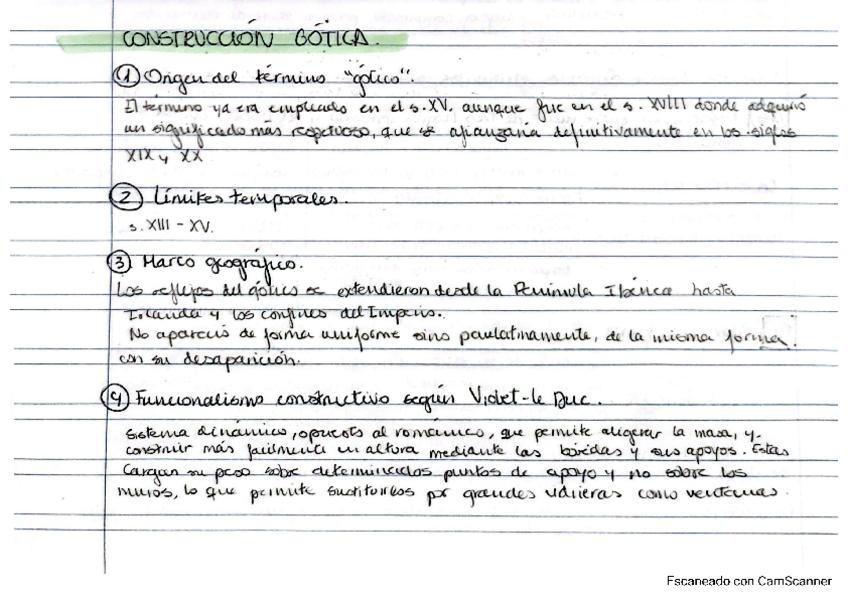 CONSTRUCCIÓN GÓTICA.
① Origen del término "gótico".
El término ya era empleado en el s. XV. aunque fue en el s. XVIII donde adquirió
un significado más respetuoso, que se afianzaría definitivamente en los siglos
XIX y XX
② Límites temporales.
s. XIII - XV.
③ Marco geográfico.
Los reflejos del gótico se extendieron desde la Península Ibérica hasta
Irlanda y los confines del Imperio.
No apareció de forma uniforme sino paulatinamente, de la misma forma
con su desaparición.
④ Funcionalismo constructivo según Violet-le Duc.
Sistema dinámico, opuesto al románico, que permite aligerar la masa, y
construir más facilmente en altura mediante las bóvedas y sus apoyos. Estas
cargan su peso sobre determinados puntos de apoyo y no sobre los
muros, lo que permite sustituirlos por grandes vidrieras como ventanas.
Escaneado con CamScanner